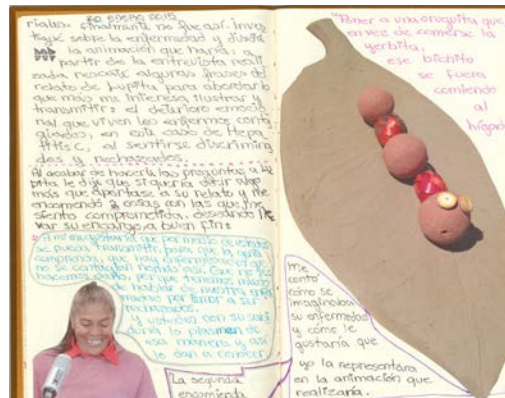 30 enero 2012
rialas. Finalmente no fue así. Inves
tigué sobre la enfermedad y
la animación que haría; a
partir de la entrevista reali
zada rescaté algunas frases del
relato de Lupita para abordar lo
que más me interesa ilustrar y
transmitir: el deterioro emocio
nal que viven los enfermos conta
giados; en este caso de Hepa
titis C, al sentirse discrimina
dos y rechazados.
Al acabar de hacerle las preguntas a Lu
pita le dije que si quería decir algo
más que aportase a su relato y me
encomendó 2 cosas con las que me
siento comprometida, deseando lle
var su encargo a buen fin:
A mí me gustaría que por medio de ustedes
se pueda transmitir para que la gente
comprenda, que hay enfermedades que
no se contagian nomás así. Que no
hacemos daño, por que tenemos miedo
de hablar de nuestra enfer
medad por temor a ser
rechazados.
Y ustedes con su sabi
duría lo plasmen de
esa manera y así
lo dan a conocer.
La segunda
encomienda
Poner a una oruguita que
en vez de comerse la
yerbita,
ese bichito
se fuera
comiendo
al
hígado
Me
contó
cómo se
imaginaba
su enfermedad
y cómo le
gustaría que
yo la representara
en la animación que
realizaría.